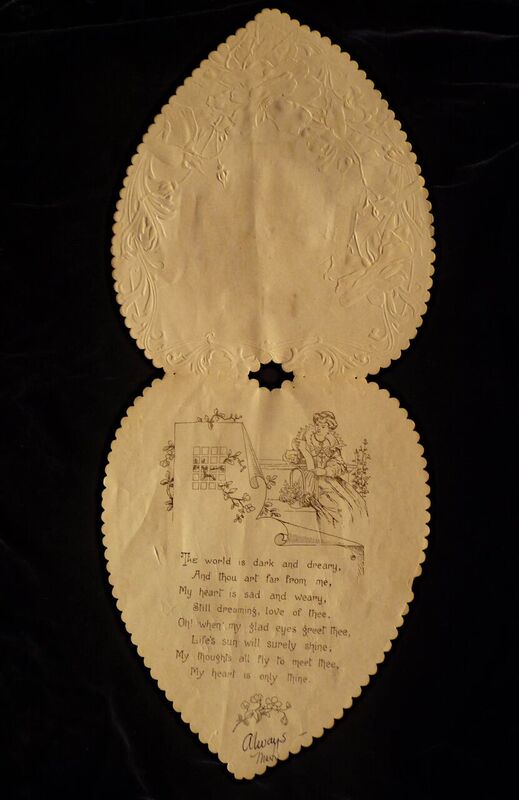 The world is dark and dreary,
And thou art far from me,
My heart is sad and weary,
Still dreaming, love of thee.
Oh! when my glad eyes greet thee,
Life's sun will surely shine,
My thoughts all fly to meet thee,
My heart is only thine.
Always